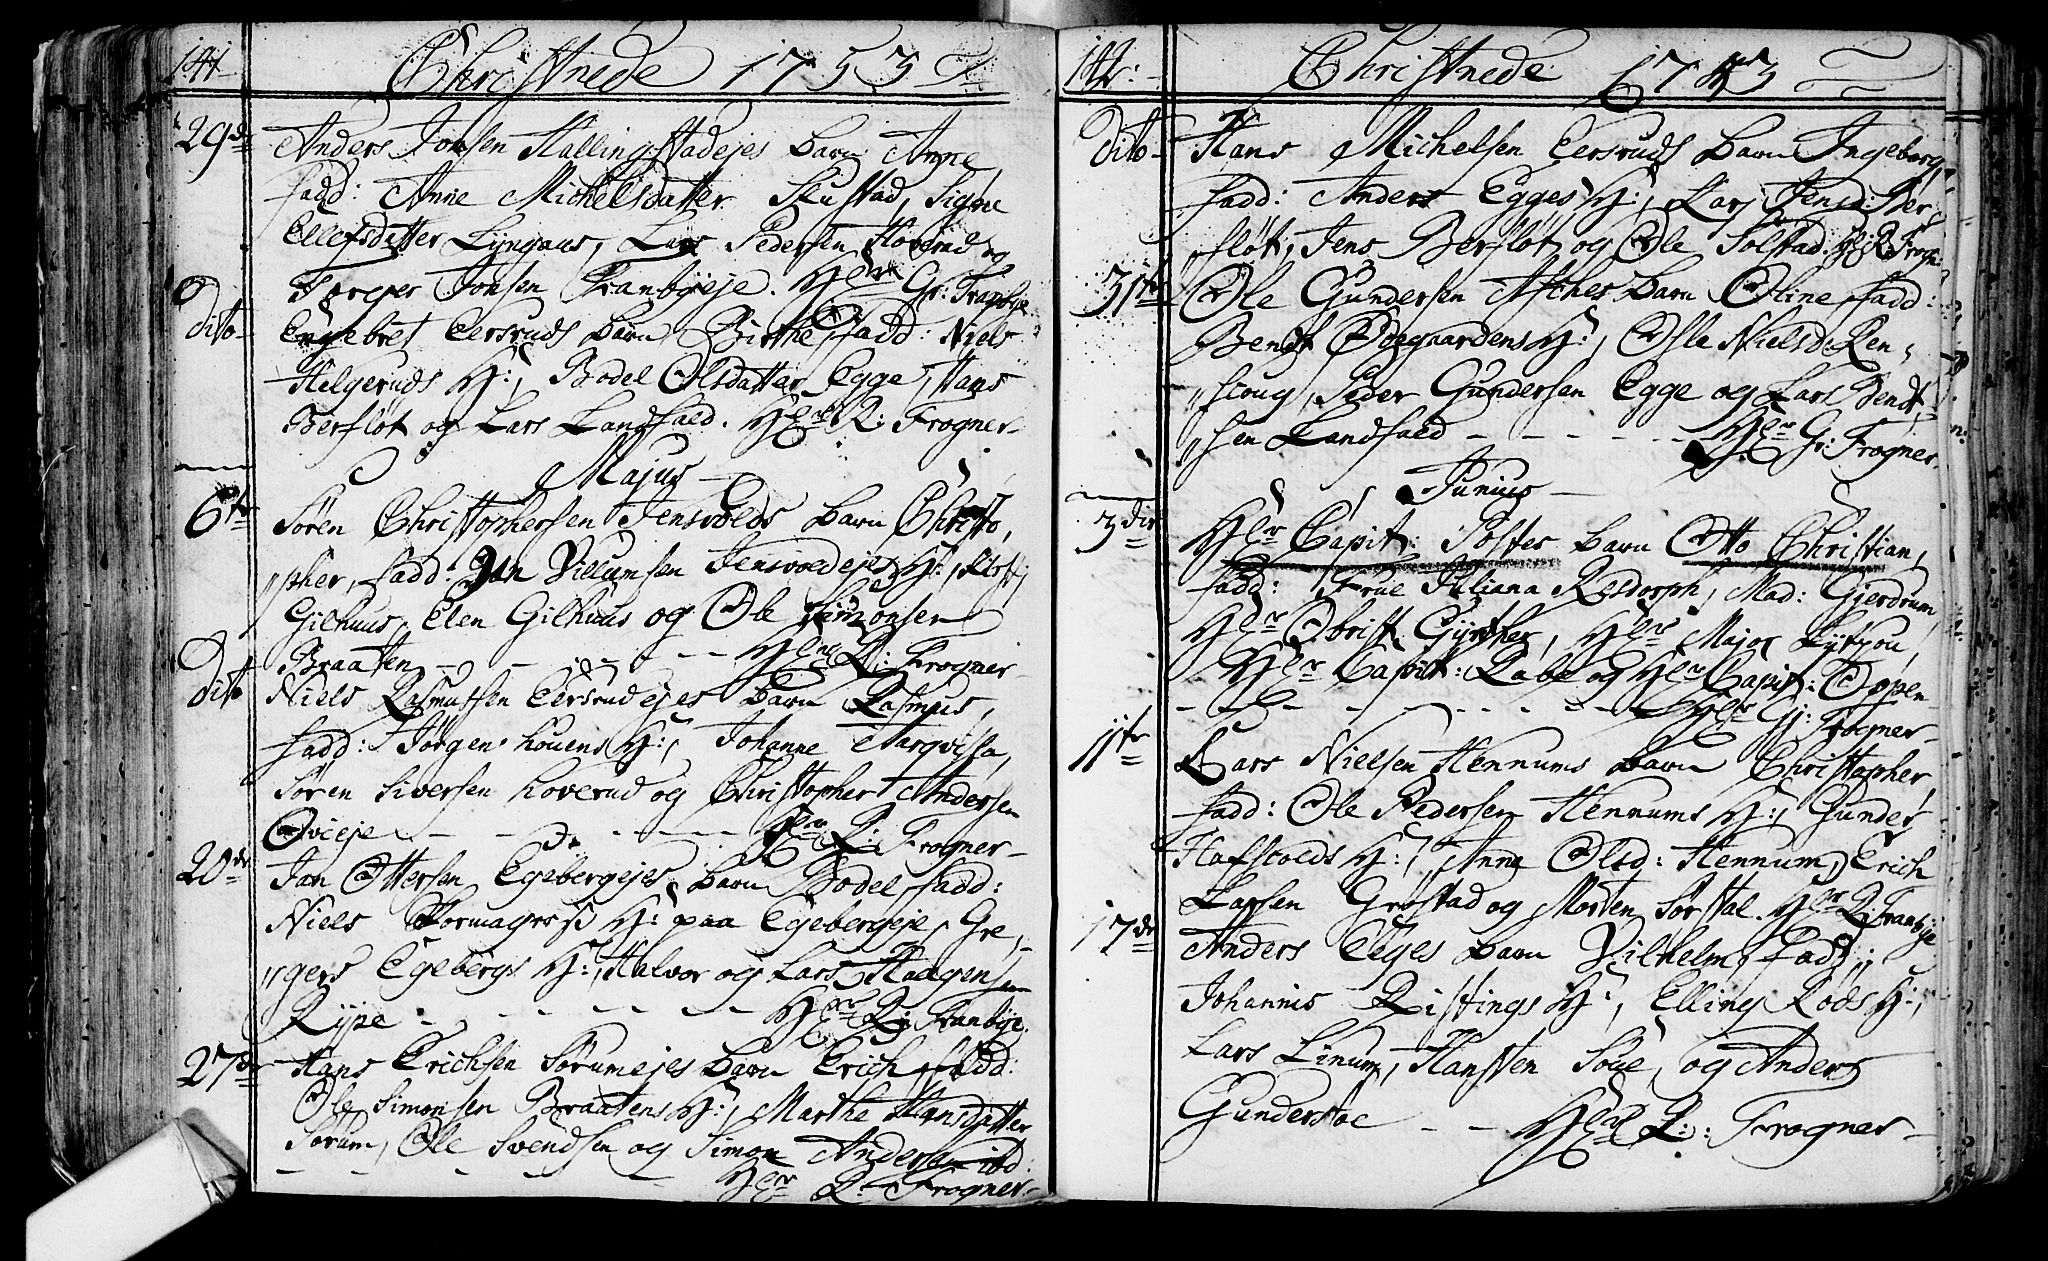 141
Christnede 1753
29de Anders Jonsen Hallingstadejes barn Anne,
fadd: Anne Michelsdatter Skustad, Signe
Ellefsdatter Lyngaas, Lars Pedersen Hoverud og
Jonsen Tranbyeje. Hr Gr: Tranbye
Dito Engebret Eersruds barn Birthe fadd: Niels
Helgeruds H:, Bodel Olsdatter Egge, Hans
Berfløt og Lars Landfald. Hr R: Frogner
Majus
6te Søren Christophersen Jensvolds barn Christo,
,,pher, fadd: Jan Villumsen Jensvoldejes H:,
Gilhuus, Elen Gilhuus og Ole Simonsen
Braaten - - - - - Hr R: Frogner
Dito Niels Rasmussen Eersrudejes barn Rasmus,
fadd: Jørgen Houens H:, Johanne
Søren Siversen Hoverud og Christopher Andersen
Qvieje - - - - - Hr R: Frogner
20de Jan Ottersen Egebergejes barn Bodel fadd:
Niels H: paa Egebergeje, Gre,
,,gers Egebergs H:, Halvor og Lars Haagensen
Rype - - - - - Hr R: Tranbye.
27de Hans Erichsen Sørumejes barn Erich, fadd:
Ole Simonsen Braatens H:, Marthe Hansdatter
Sørum, Ole Svendsen og Simon Andersen ibd:
- - - - - Hr R: Frogner
142:
Christnede 1753
Dito Hans Michelsen Eersruds barn Ingeborg,
fadd: Anders Egges H:, Lars Jensd: Ber,
,,fløt, Jens Berfløt og Ole Solstad. Hr R: Frogn:
31te Ole Gundersen Asches barn Oline fadd:
Bendt Ødegaardens H:, Osle Nielsd: Ren,
,,scoug, Peder Gundersen Egge og Lars Bendt,
,,sen Landfald - - - - - Hr Gr: Frogner
Junius
3die Hr Capit: Posters barn Otto Christian,
fadd: Frue Juliana Resdorph, Mad: Gjerdrum,
Hr Obrist Gynther, Hr Major Lytzou,
Hr Capit: Rabe og Hr Capit: Oppen
- - - - - Hr Gj: Frogner
11te Lars Nielsen Hennums barn Christopher,
fadd: Ole Pedersen Hennums H:, Gunder
Hafscolds H:, Anne Olsd: Hennum, Erich
Larsen Grøstad og Morten Sørstal. Hr R: Tranbye
17de Anders Egges barn Vilhelm, fadd:
Johannis Ristings H:, Elling Røds H:,
Lars Linum, Hans Sten Søue, og Anders
Gunderstoe - - Hr R: Frogner